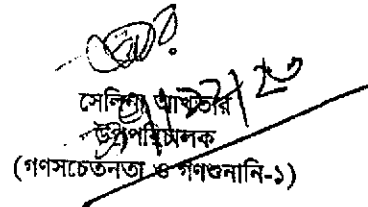 সেলিনা আখতার
উপপরিচালক
(গণসচেতনতা ও গণশুনানি-১)